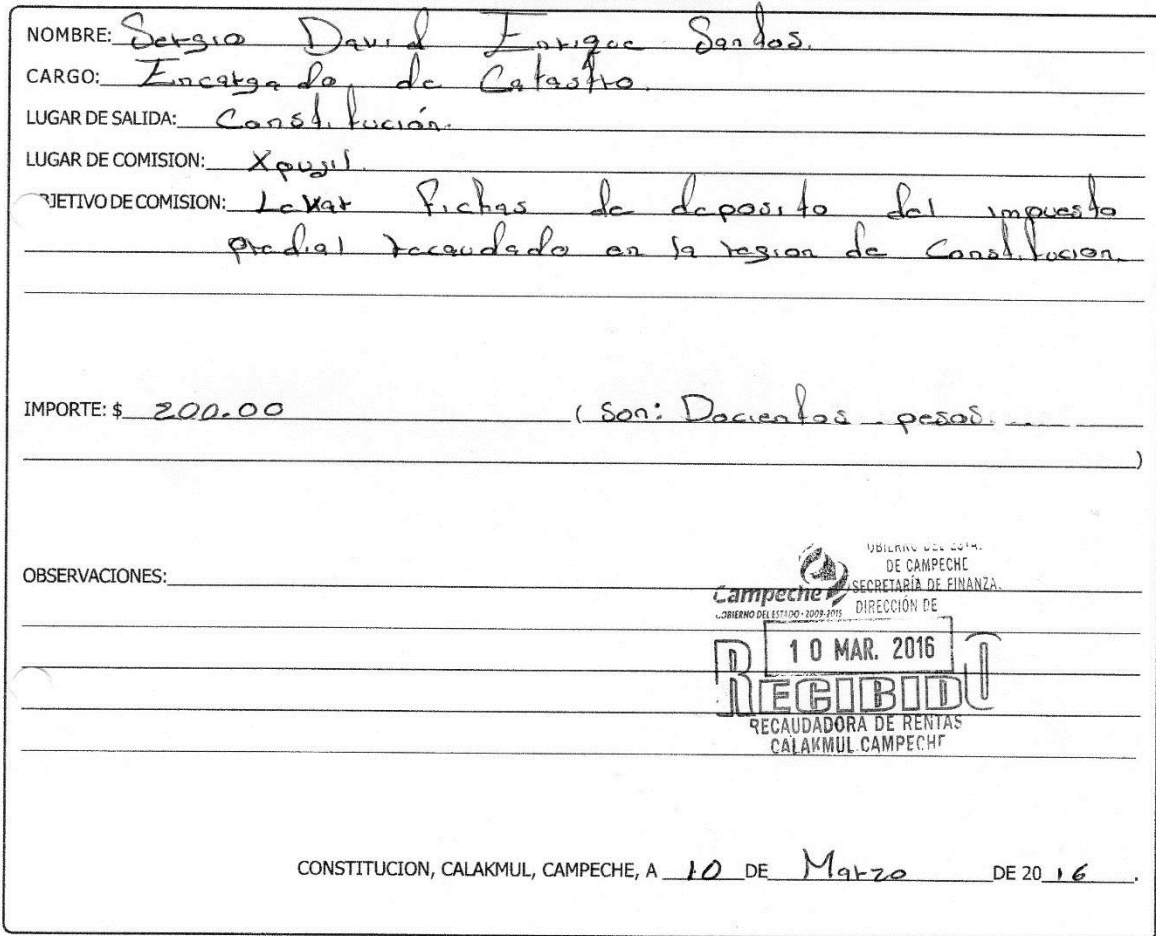 NOMBRE: Sergio David Enrique Santos.
CARGO: Encargado de Catastro.
LUGAR DE SALIDA: Constitución.
LUGAR DE COMISION: Xpujil.
OBJETIVO DE COMISION: LeVar fichas de deposito del impuesto
predial recaudado en la region de Constitucion.
IMPORTE: $ 200.00 ( Son: Docientos pesos.
)
OBSERVACIONES:
DE CAMPECHE
SECRETARÍA DE FINANZA
Campeche
GOBIERNO DEL ESTADO • 2009-2015
DIRECCIÓN DE
10 MAR. 2016
RECIBIDO
RECAUDADORA DE RENTAS
CALAKMUL CAMPECHE
CONSTITUCION, CALAKMUL, CAMPECHE, A 10 DE Marzo DE 20 16.